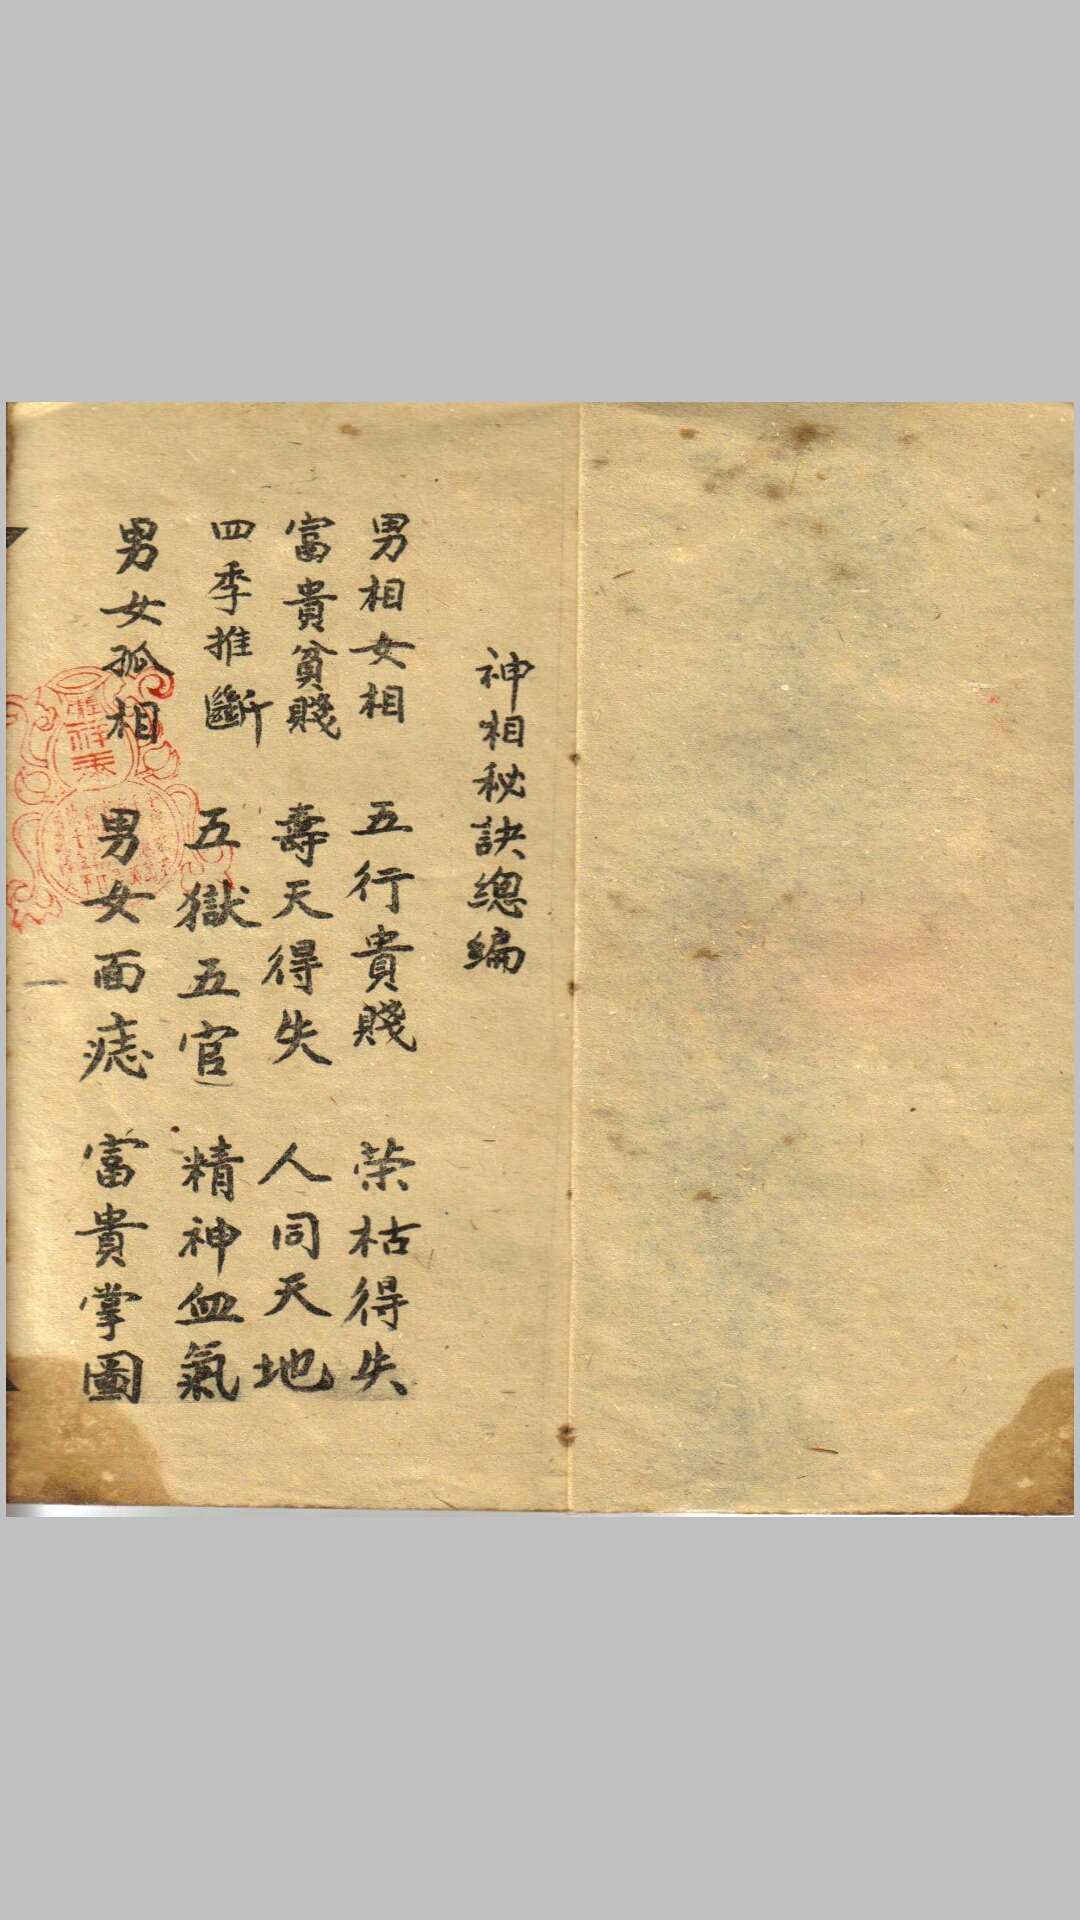 神相秘訣總編
男相女相 五行貴賤 荣枯得失
富貴貧賤 壽天得失 人同天地
四季推斷 五獄五官 精神血氣
男女孤相 男女面痣 富貴掌圖